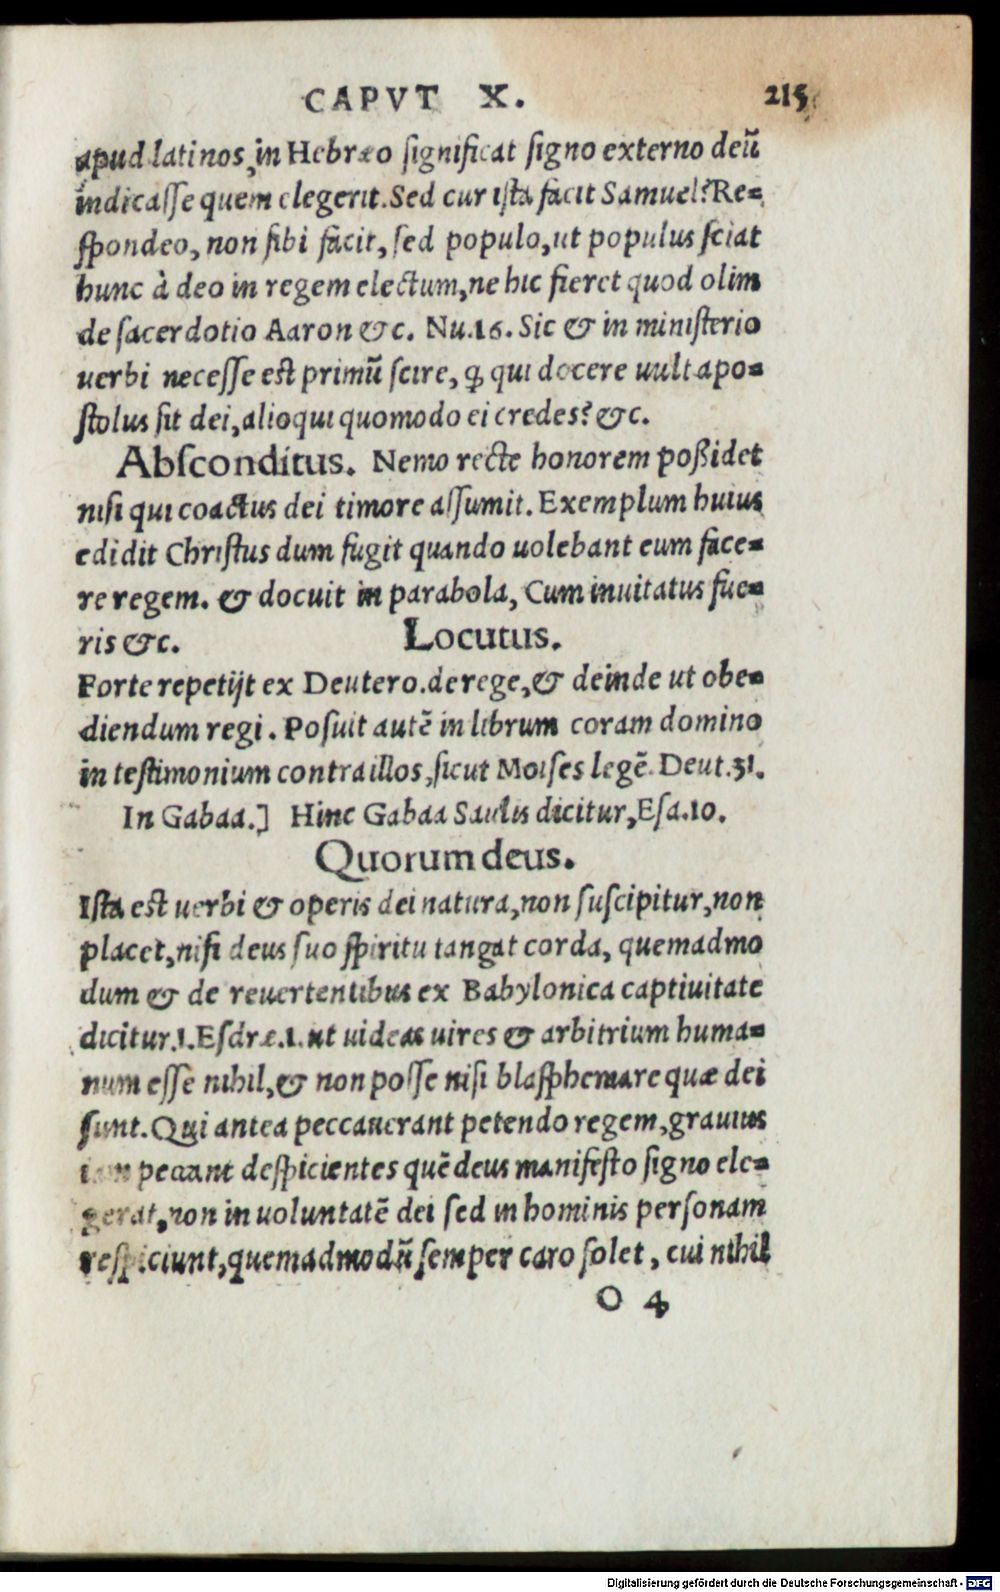 CAPVT X. 215
apud latinos, in Hebræo ſignificat ſigno externo deũ
indicaſſe quem elegerit. Sed cur iſta facit Samuel? Re-
ſpondeo, non ſibi facit, ſed populo, ut populus ſciat
hunc à deo in regem electum, ne hic fieret quod olim
de ſacerdotio Aaron &c. Nu.16. Sic & in miniſterio
uerbi neceſſe eſt primũ ſcire, ꝙ qui docere uult apo-
ſtolus ſit dei, alioqui quomodo ei credes? &c.
Abſconditus. Nemo recte honorem poßidet
niſi qui coactus dei timore aſſumit. Exemplum huius
edidit Chriſtus dum fugit quando uolebant eum face-
re regem. & docuit in parabola, Cum inuitatus fue-
ris &c. Locutus.
Forte repetijt ex Deutero. de rege, & deinde ut obe-
diendum regi. Poſuit autẽ in librum coram domino
in teſtimonium contra illos, ſicut Moiſes legẽ. Deut.31.
In Gabaa.] Hinc Gabaa Saulis dicitur, Eſa.10.
Quorum deus.
Iſta eſt uerbi & operis dei natura, non ſuſcipitur, non
placet, niſi deus ſuo ſpiritu tangat corda, quemadmo
dum & de reuertentibus ex Babylonica captiuitate
dicitur.1.Eſdræ.1. ut uideas uires & arbitrium huma-
num eſſe nihil, & non poſſe niſi blaſphemare quæ dei
ſunt. Qui antea peccauerant petendo regem, grauius
iam peccant deſpicientes quẽ deus manifeſto ſigno ele-
gerat, non in uoluntatẽ dei ſed in hominis perſonam
reſpiciunt, quemadmodũ ſemper caro ſolet, cui nihil
O 4
Digitalisierung gefördert durch die Deutsche Forschungsgemeinschaft - DFG